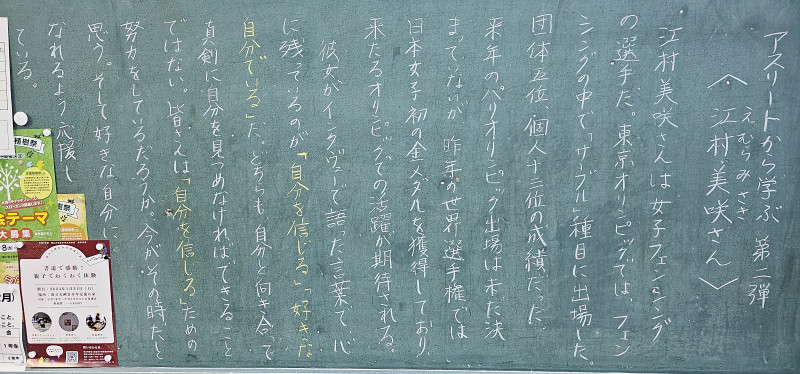 アスリートから学ぶ 第二弾
えむらみさき
〈江村美咲さん〉
江村美咲さんは女子フェンシング
の選手だ。東京オリンピックでは、フェン
シングの中で「サーブル」種目に出場した。
団体五位、個人十三位の成績だった。
来年のパリオリンピック出場は未だ決
まってないが、昨年が世界選手権では
日本女子初の金メダルを獲得しており、
来たるオリンピックでの活躍が期待される。
彼女がインタヴューで語った言葉で、心
に残っているのが「自分を信じる」「好きな
自分でいる」だ。どちらも自分と向き合って
真剣に自分を見つめなければできること
ではない。皆さんは「自分を信じる」ための
努力をしているだろうか。今がその時だと
思う。そして好きな自分に、
なれるよう応援し
ている。
植樹祭
テーマ
大募集
書道で感動!
親子でわくわく体験